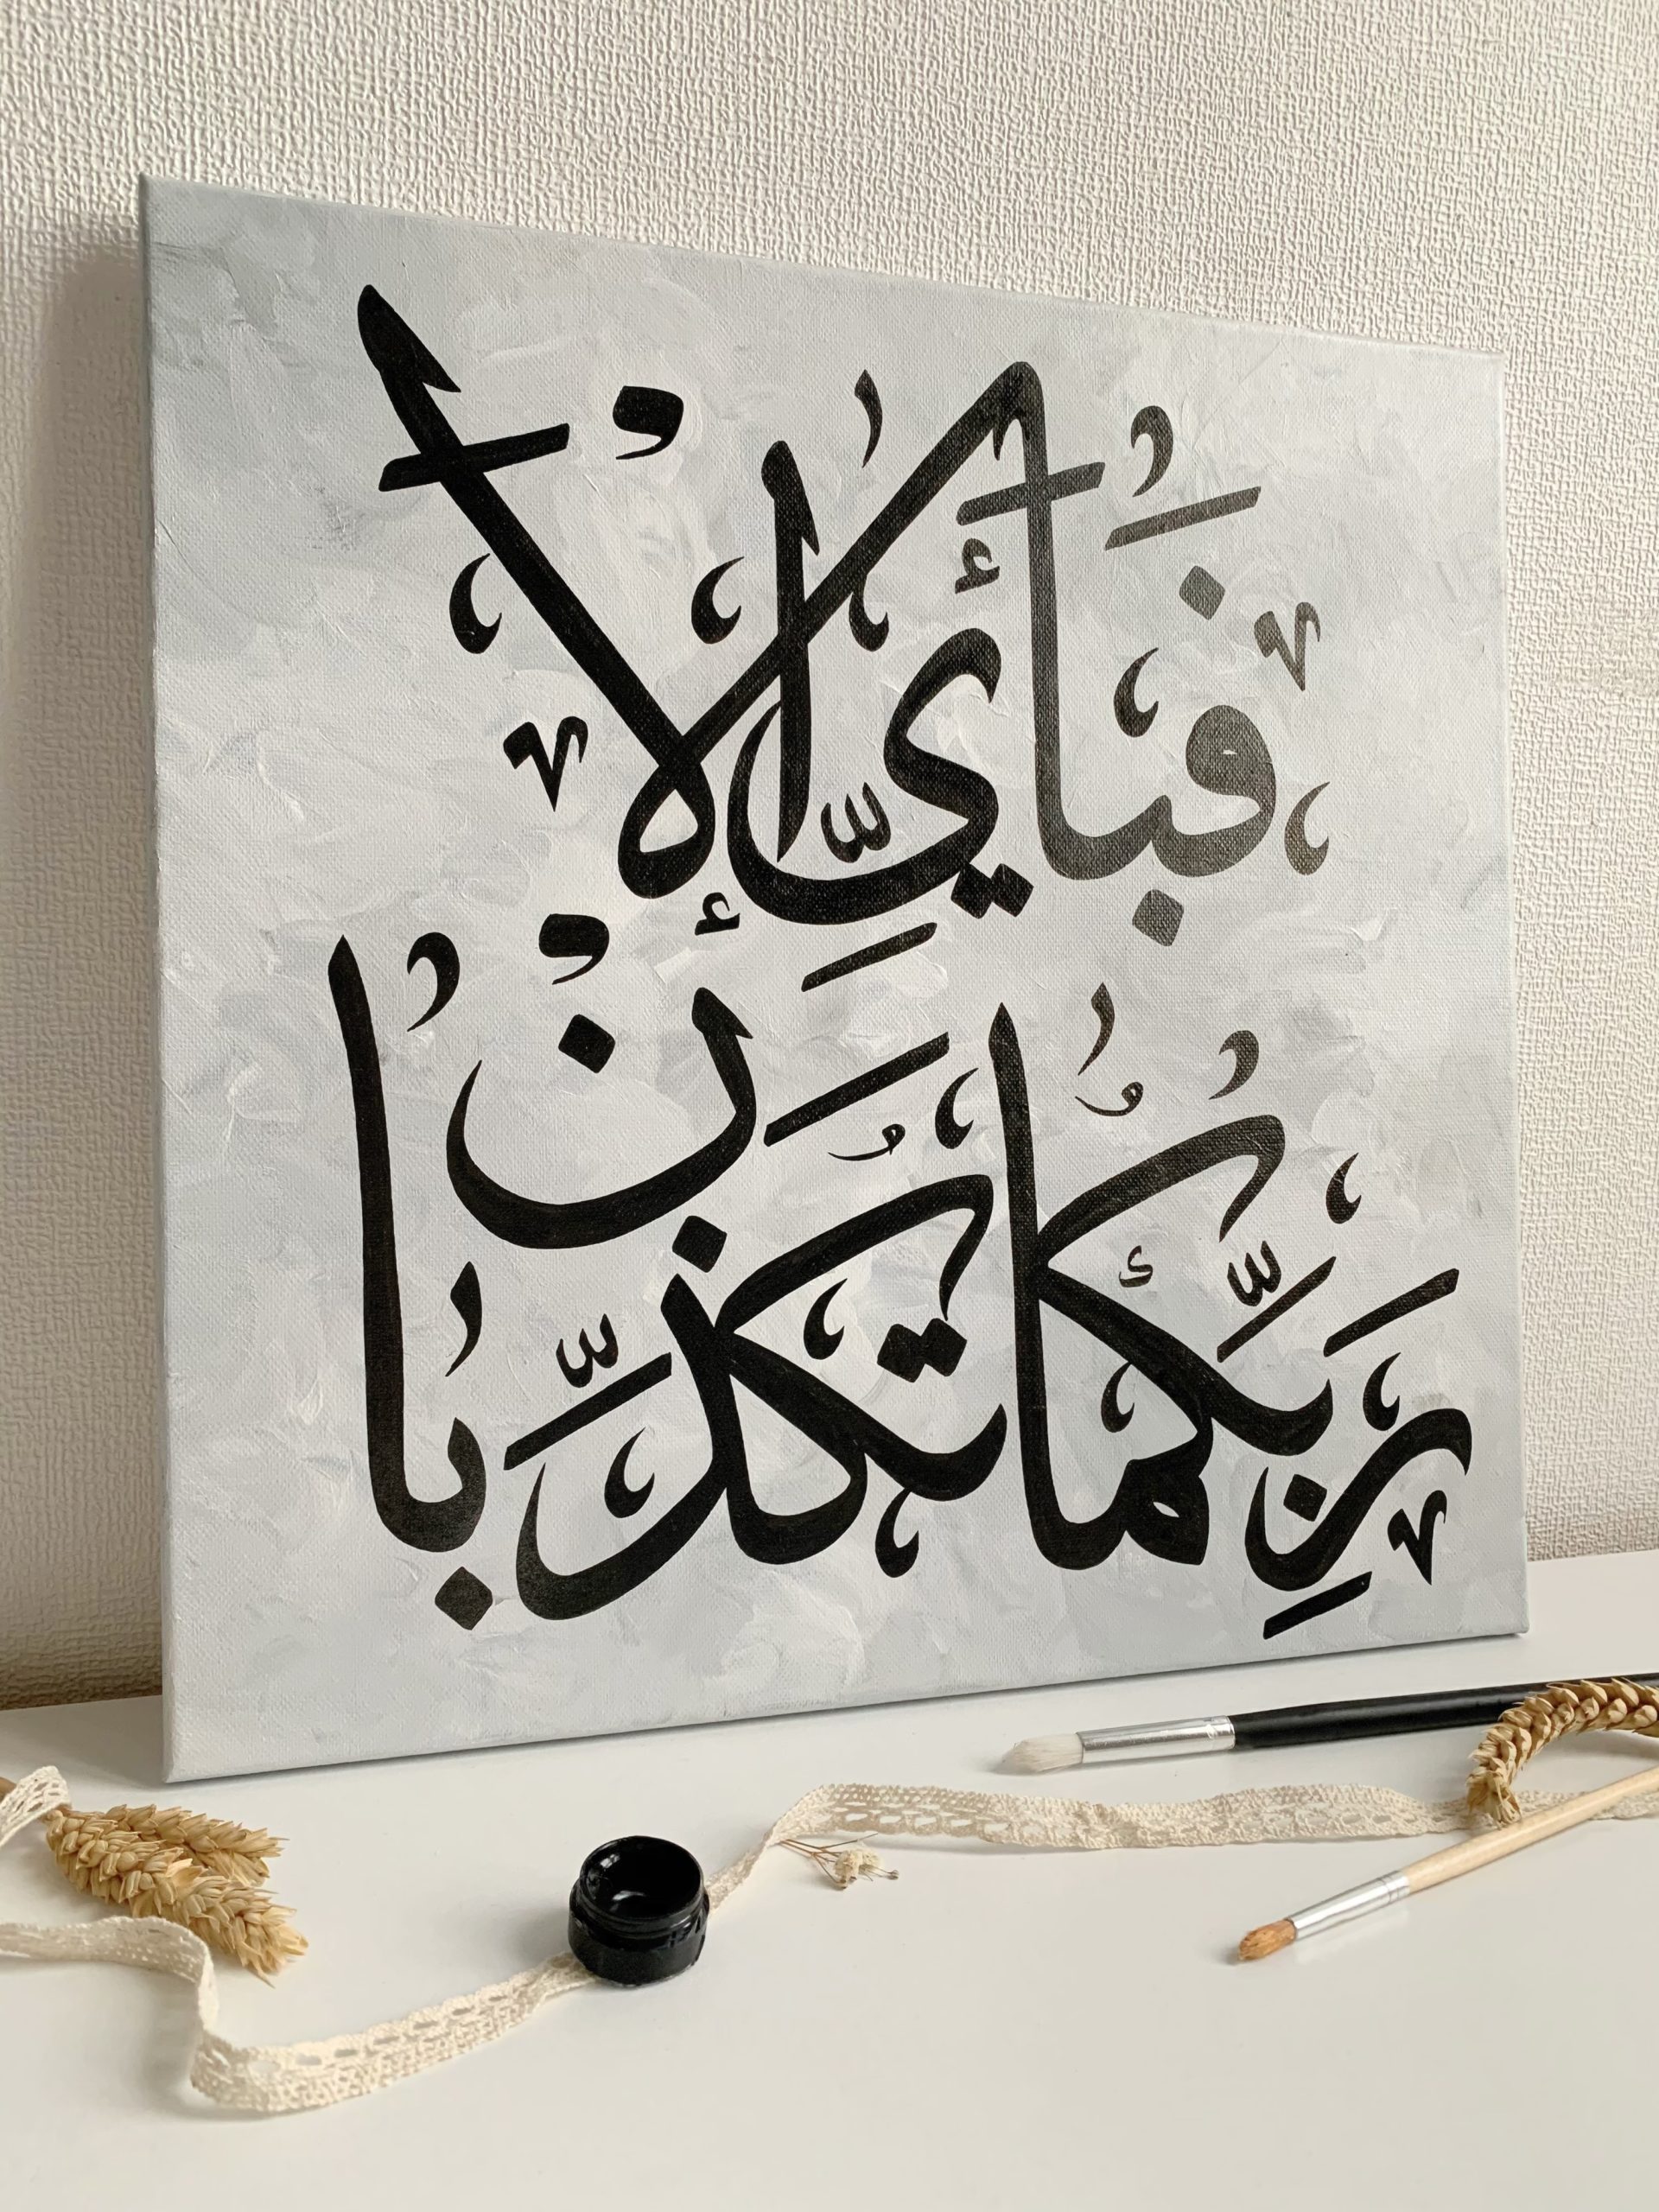 فَبِأَيِّ آلَاءِ
رَبِّكُمَا تُكَذِّبَانِ